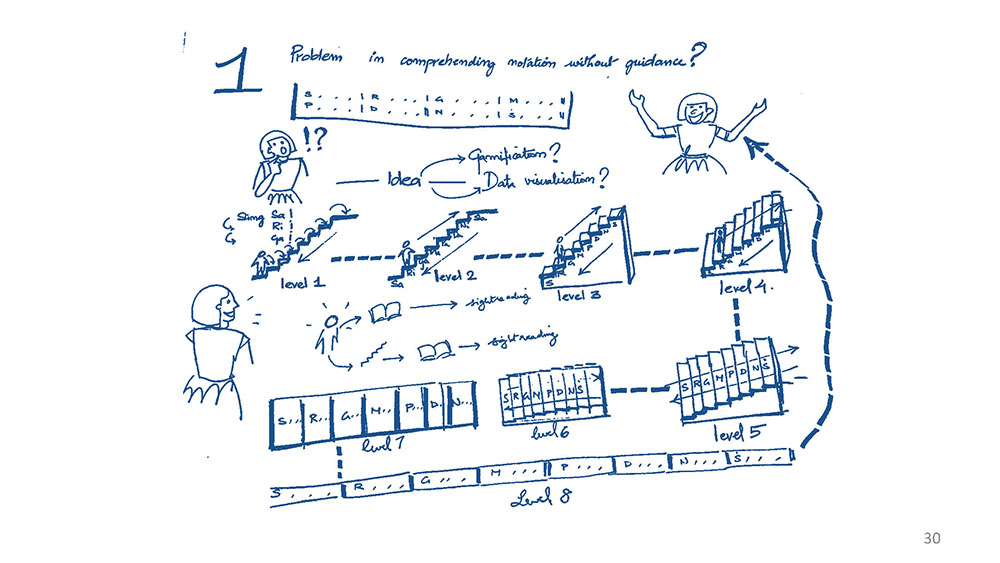 1
Problem in comprehending notation without guidance?
S . . . | R . . . | G . . . | M . . . ||
P . . . | D . . . || N . . . | Ṡ . . . ||
!?
Idea
Gamification?
Data visualisation?
Sa
Ri
Ga
level 1
Sa Ri Ga
Sa
level 2
S R G M P D N S
level 3
S R G M
level 4.
→ sightreading
→ sightreading
S R G M P D N Ṡ
level 5
S R G M P D N Ṡ
level 6
S... R... G... M... P... D... N...
level 7
S . . . . R . . . . G . . . . M . . . . P . . . . D . . . . N . . . . Ṡ . . . .
Level 8
30